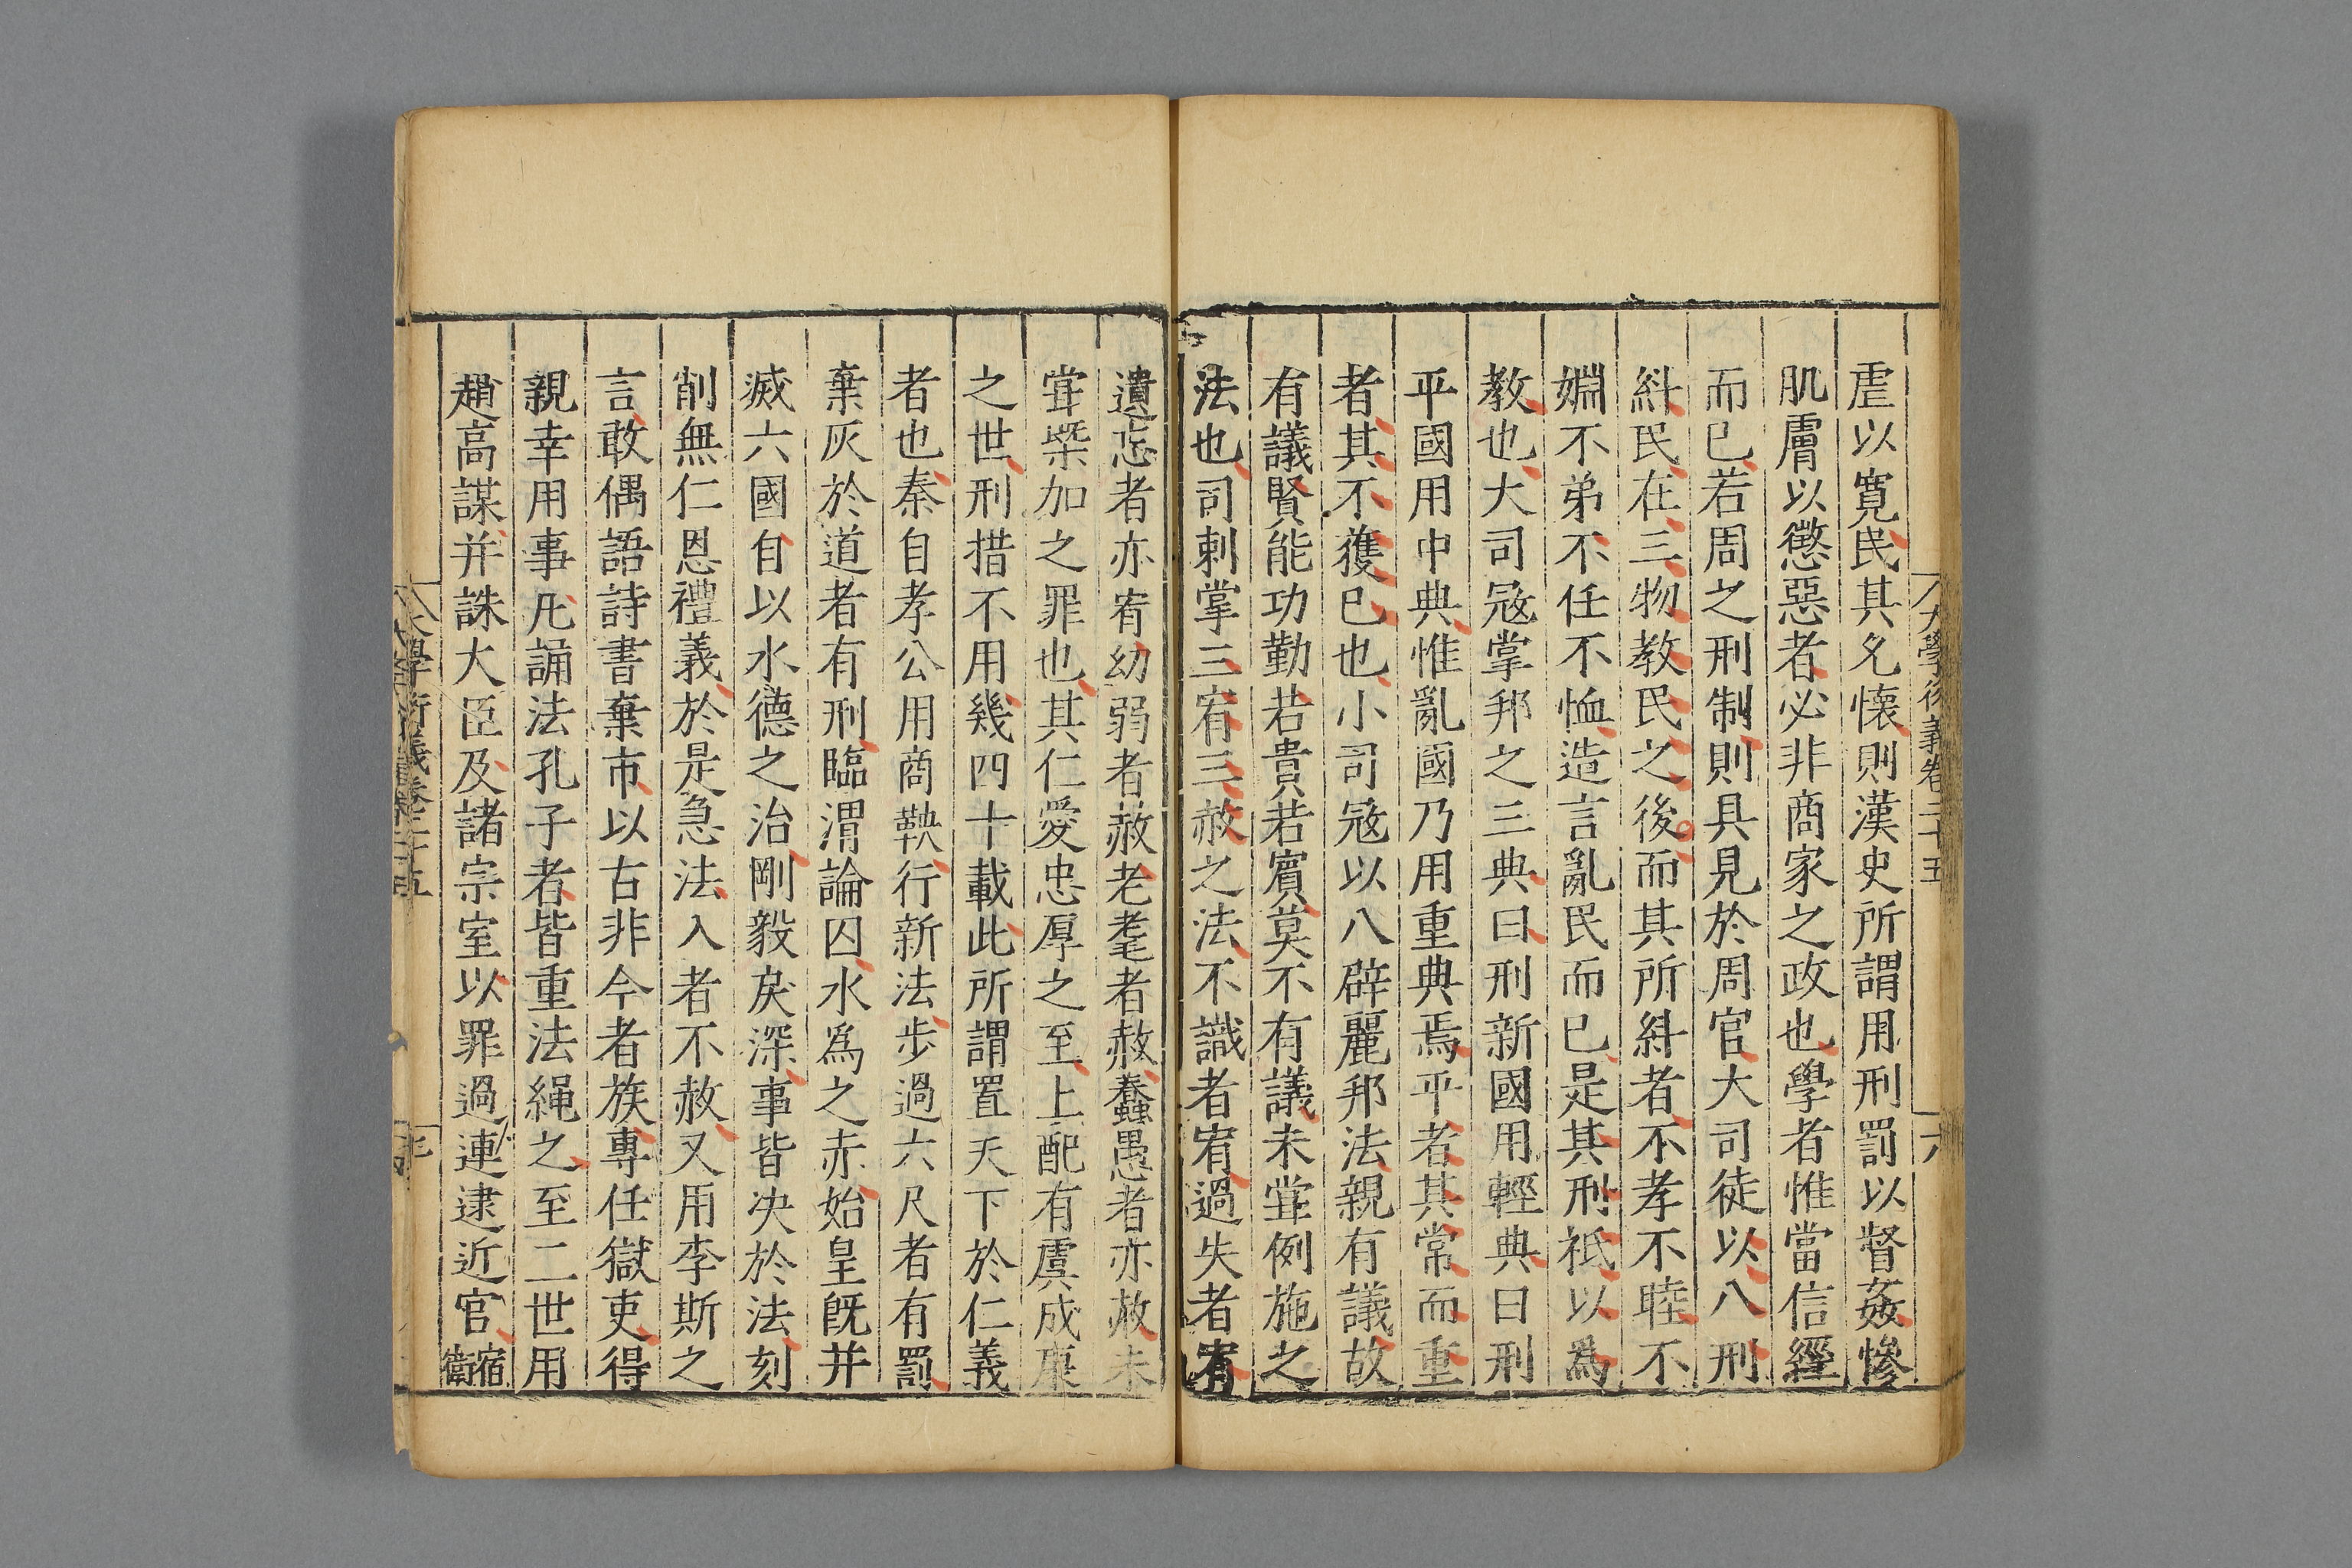 大學衍義卷二十五
六
虐以寬民其允懷則漢史所謂用刑罰以督姦慘
肌膚以懲惡者必非商家之政也學者惟當信經
而已若周之刑制則具見於周官大司徒以八刑
糾民在三物教民之後而其所糾者不孝不睦不
婣不弟不任不恤造言亂民而已是其刑祗以爲
教也大司冦掌邦之三典曰刑新國用輕典曰刑
平國用中典惟亂國乃用重典焉平者其常而重
者其不獲已也小司冦以八辟麗邦法親有議故
有議賢能功勤若貴若賓莫不有議未甞例施之
法也司刺掌三宥三赦之法不識者宥過失者宥
遺忘者亦宥幼弱者赦老耄者赦蠢愚者亦赦未
甞槩加之罪也其仁愛忠厚之至上配有虞成康
之世刑措不用幾四十載此所謂置天下於仁義
者也秦自孝公用商鞅行新法步過六尺者有罰
棄灰於道者有刑臨渭論囚水爲之赤始皇旣并
滅六國自以水德之治剛毅戾深事皆决於法刻
削無仁恩禮義於是急法入者不赦又用李斯之
言敢偶語詩書棄市以古非今者族專任獄吏得
親幸用事凡誦法孔子者皆重法䋲之至二世用
趙高謀并誅大臣及諸宗室以罪過連逮近官宿衛
大學衍義卷二十五